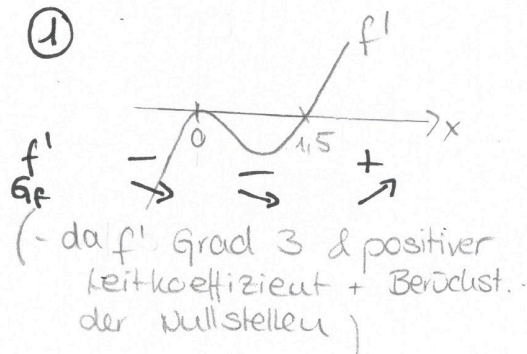 1
f'
0
1,5
x
f' - - +
Gf
(- da f' Grad 3 & positiver
Leitkoeffizient + Berückst.
der Nullstellen)